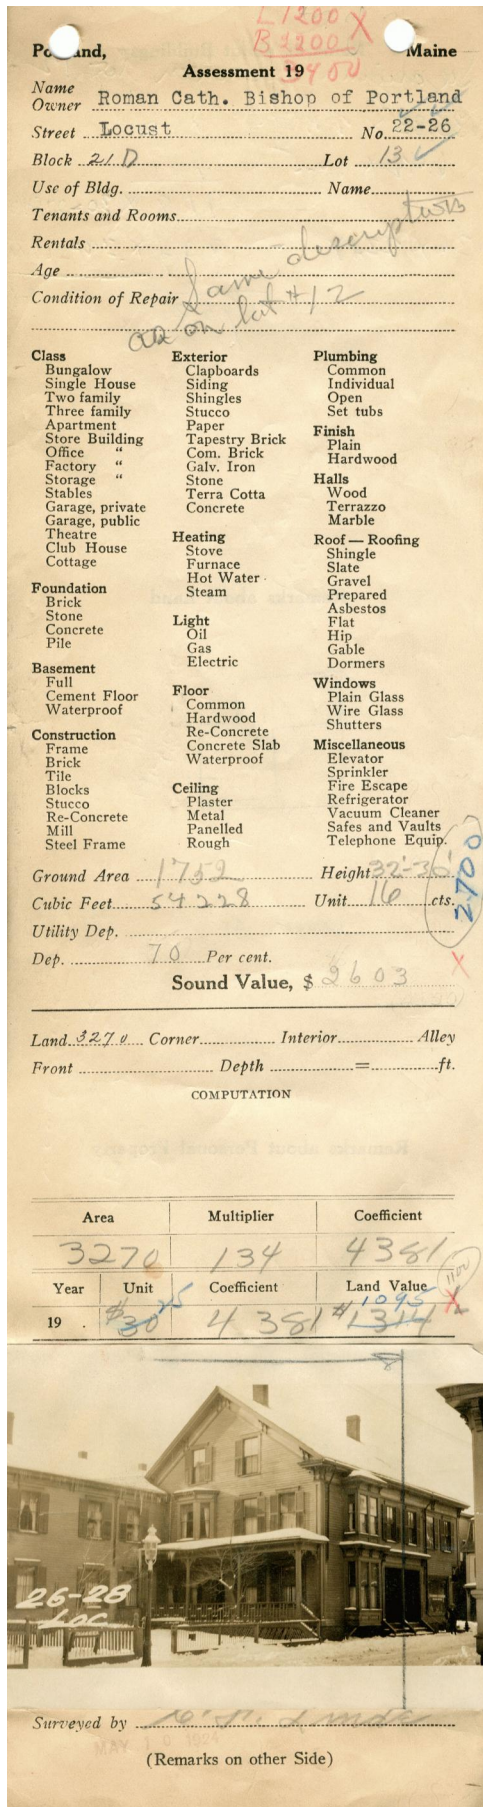 L 1200 X
B 2200
3400
Portland, Maine
Assessment 19
Name
Owner Roman Cath. Bishop of Portland
Street Locust No. 22-26
Block 21 D Lot 13
Use of Bldg. Name
Tenants and Rooms
Rentals
Age
Condition of Repair Same descriptions
as on lot #12
Class
Bungalow
Single House
Two family
Three family
Apartment
Store Building
Office "
Factory "
Storage "
Stables
Garage, private
Garage, public
Theatre
Club House
Cottage
Foundation
Brick
Stone
Concrete
Pile
Basement
Full
Cement Floor
Waterproof
Construction
Frame
Brick
Tile
Blocks
Stucco
Re-Concrete
Mill
Steel Frame
Exterior
Clapboards
Siding
Shingles
Stucco
Paper
Tapestry Brick
Com. Brick
Galv. Iron
Stone
Terra Cotta
Concrete
Heating
Stove
Furnace
Hot Water
Steam
Light
Oil
Gas
Electric
Floor
Common
Hardwood
Re-Concrete
Concrete Slab
Waterproof
Ceiling
Plaster
Metal
Panelled
Rough
Plumbing
Common
Individual
Open
Set tubs
Finish
Plain
Hardwood
Halls
Wood
Terrazzo
Marble
Roof — Roofing
Shingle
Slate
Gravel
Prepared
Asbestos
Flat
Hip
Gable
Dormers
Windows
Plain Glass
Wire Glass
Shutters
Miscellaneous
Elevator
Sprinkler
Fire Escape
Refrigerator
Vacuum Cleaner
Safes and Vaults
Telephone Equip.
Ground Area 1752 Height 32'-30'
Cubic Feet 54228 Unit 16 cts.
2700
Utility Dep.
Dep. 70 Per cent. X
Sound Value, $ 2603
Land 3270 Corner Interior Alley
Front Depth = ft.
COMPUTATION
Area Multiplier Coefficient
3270 134 4381
Year Unit Coefficient Land Value 1100
25 1095 X
19 . $30 4381 $1314
26-28
LOC
Surveyed by
MAY 10 1924
(Remarks on other Side)